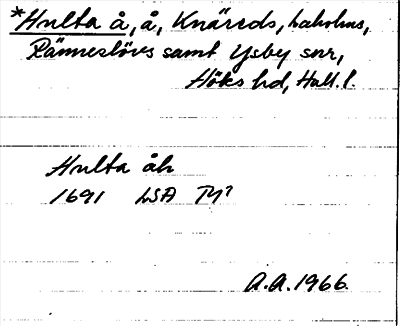 *Hulta å, å, Knäreds, Laholms,
Ränneslövs samt Ysby snr,
Höks hd, Hall. l.
Hulta åh
1691 LSA
A.A. 1966.